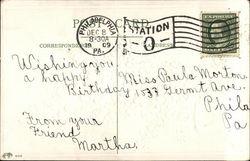 POST CARD
CORRESPONDENCE
PHILADELPHIA
DEC 8
8-30A
1909
PA.
STATION
O
Wishing you
a happy
Birthday
From your
Friend
Martha.
Miss Paula Morton
1537 Germt. Ave.
Phila
Pa